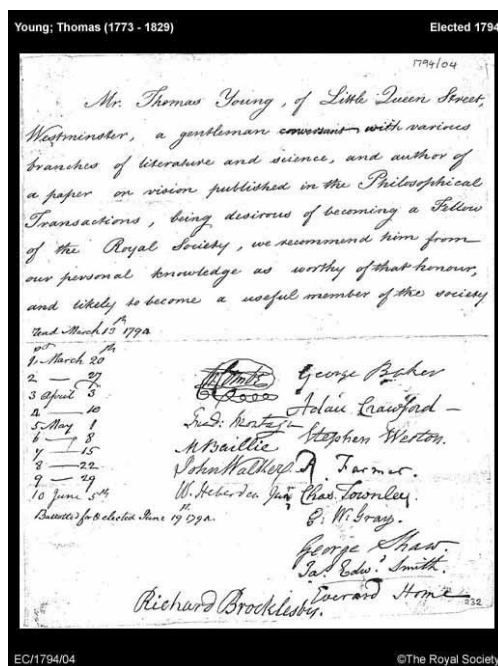 Young; Thomas (1773 - 1829) Elected 1794
1794/04
Mr. Thomas Young, of Little Queen Street,
Westminster, a gentleman conversant with various
branches of literature and science, and author of
a paper on vision published in the Philosophical
Transactions, being desirous of becoming a Fellow
of the Royal Society, we recommend him from
our personal knowledge as worthy of that honour,
and likely to become a useful member of the society
read March 13th 1794
1, March 20th
2 — 27
3 April 3d
4 — 10
5 May 1
6 — 8
7 — 15
8 — 22
9 — 29
10 June 5th
Balloted for & elected June 19 1794.
Combe
Fred: Montagu
M Baillie
John Walker
W. Heberden Junr
Richard Brocklesby.
George Baker
Adair Crawford —
Stephen Weston.
R Farmer.
Chas. Townley.
E. W. Gray.
George Shaw.
Jas Edwd. Smith.
Everard Home
232
EC/1794/04 ©The Royal Society